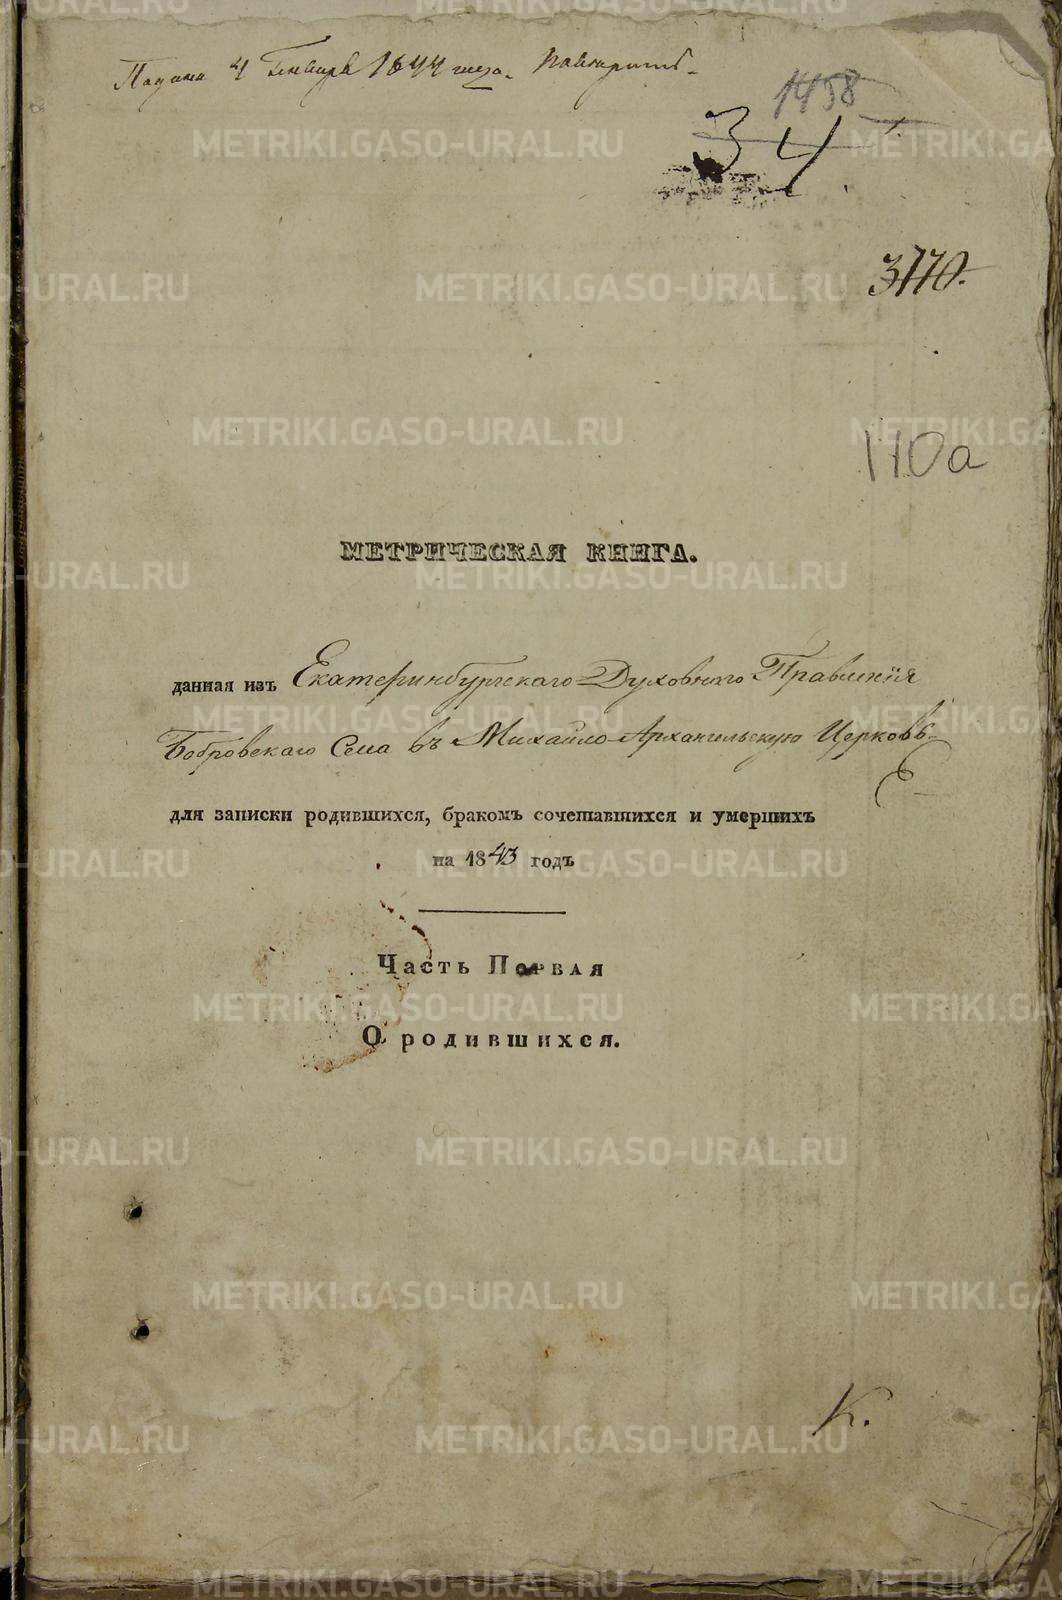 Подана 4 Генваря 1844 года. Повѣрить
1458
34.
3770.
110а
МЕТРИЧЕСКАЯ КНИГА.
данная изъ Екатеринбургскаго Духовнаго Правленія
Бобровскаго Села въ Михайло-Архангельскую Церковь
для записки родившихся, бракомъ сочетавшихся и умершихъ
на 1843 годъ
Часть Первая
О родившихся.
К.
METRIKI.GASO-URAL.RU